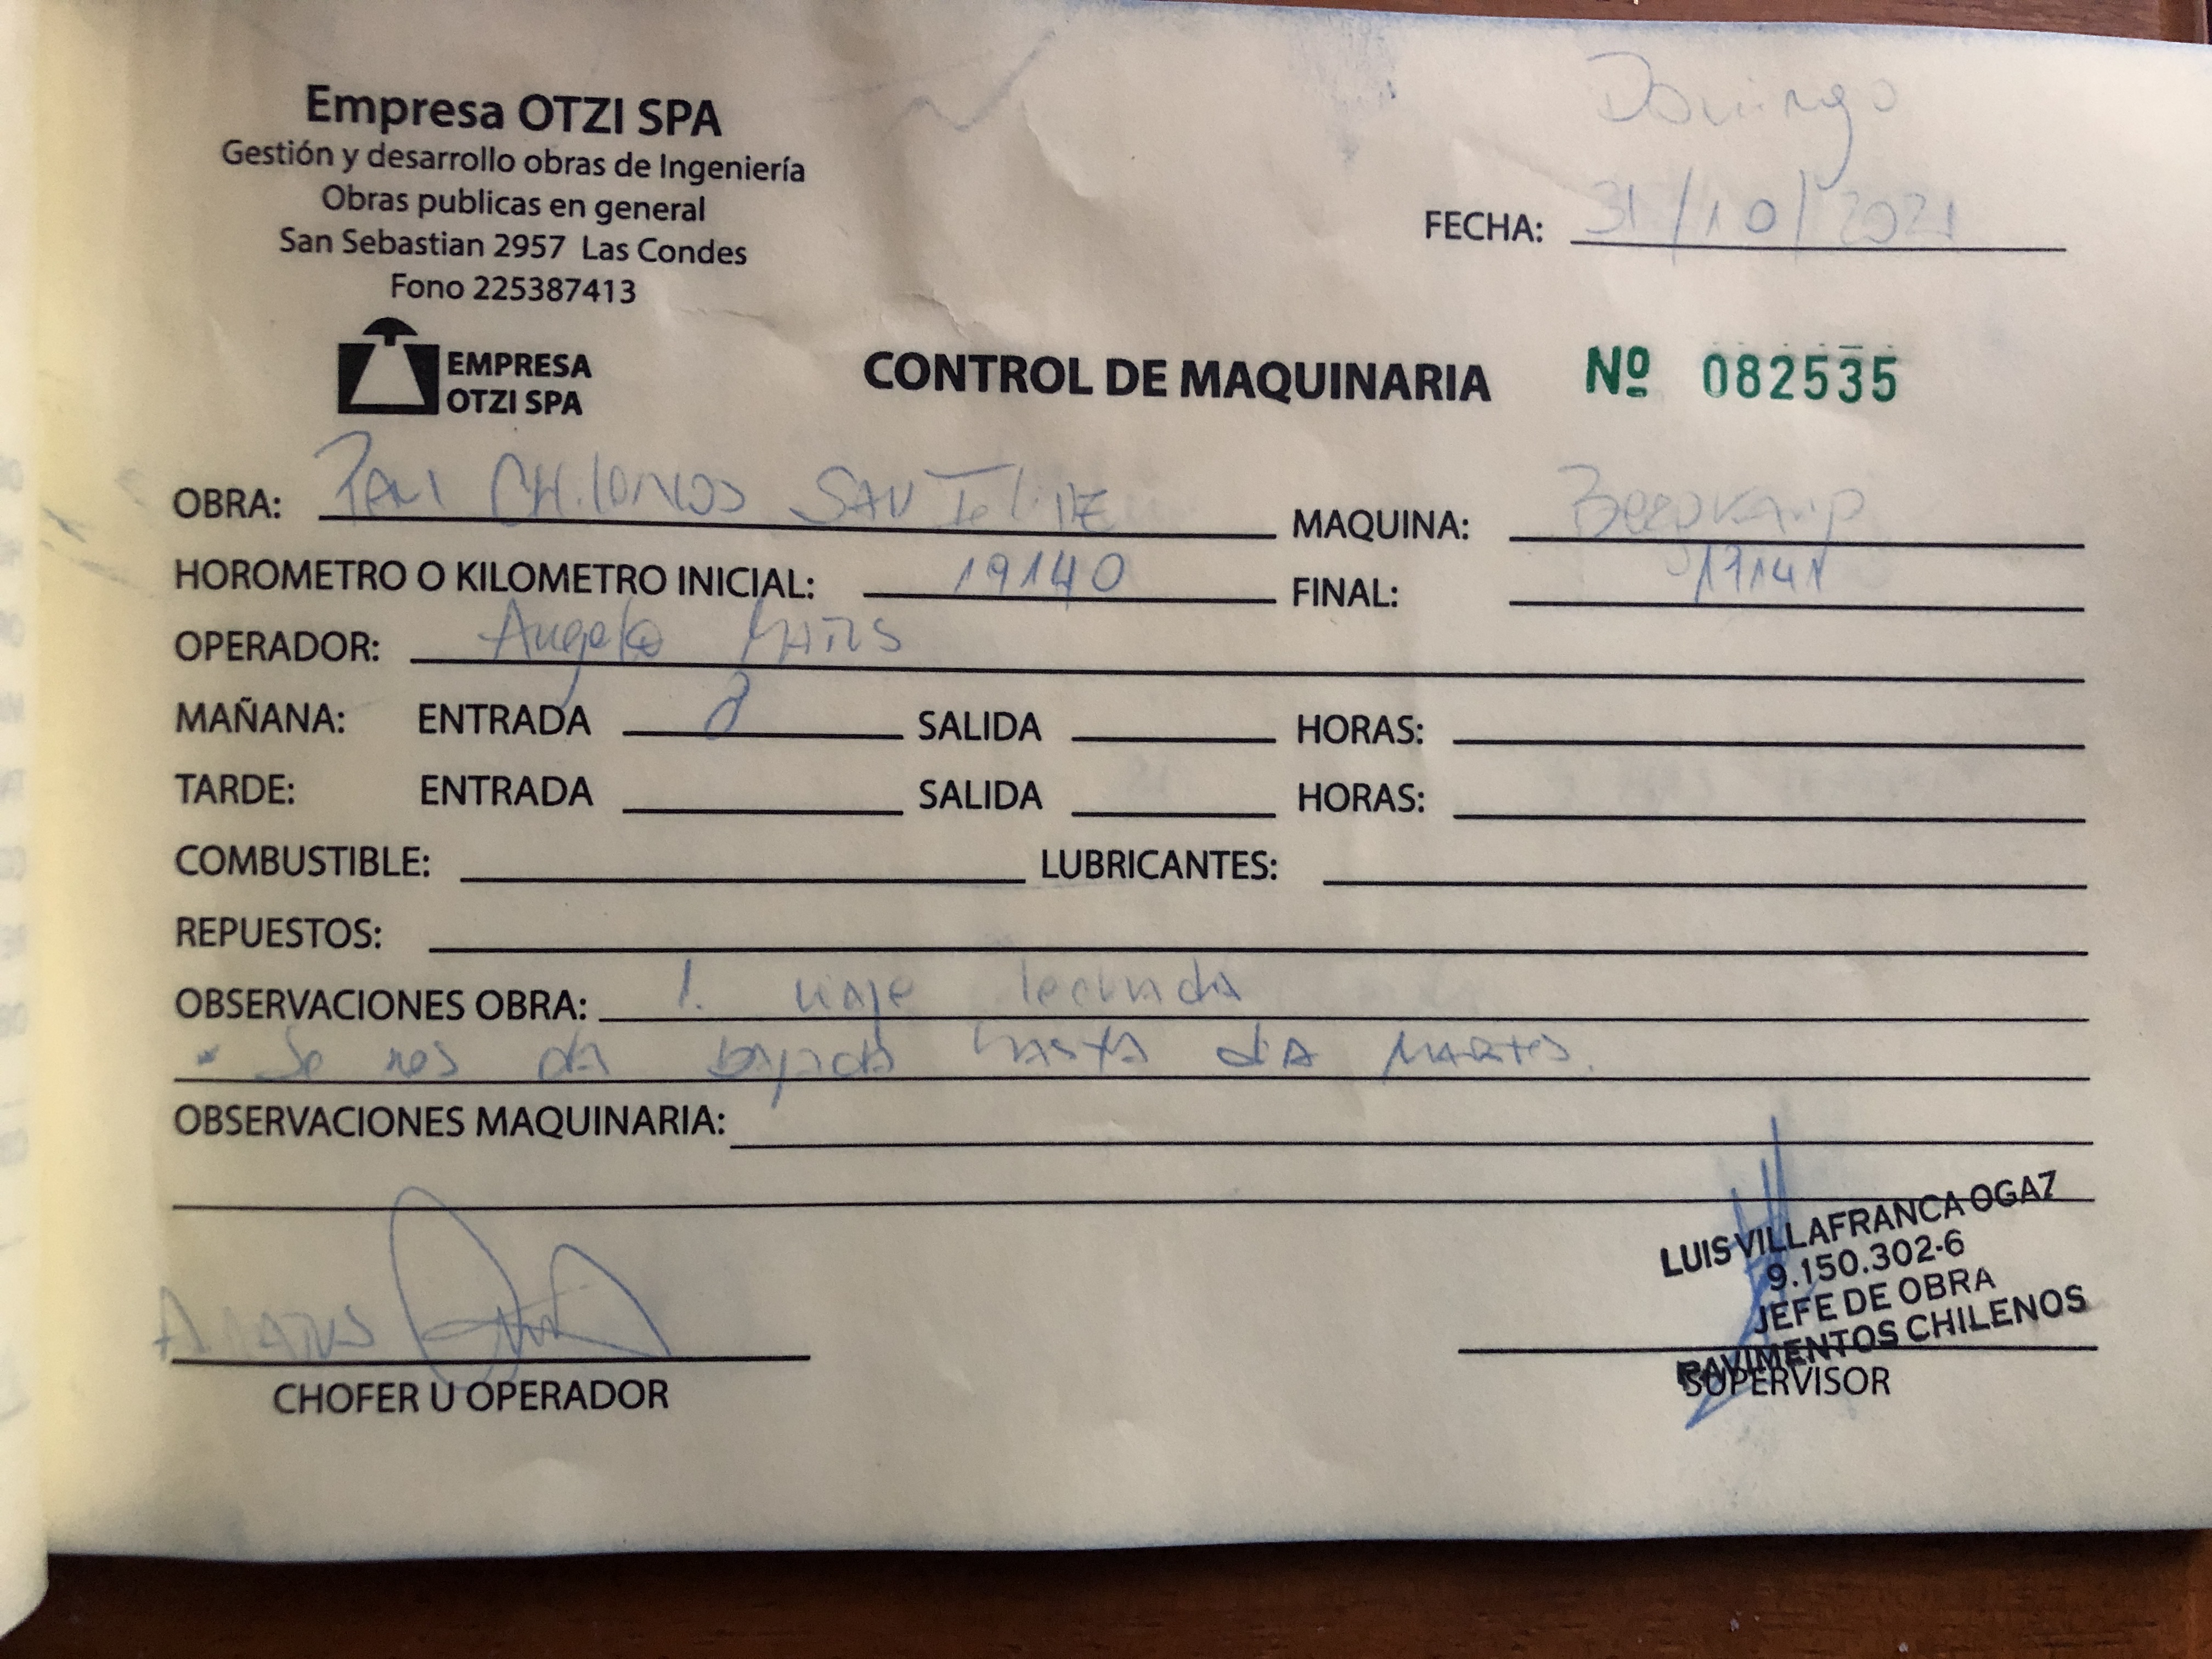 Empresa OTZI SPA
Gestión y desarrollo obras de Ingeniería
Obras publicas en general
San Sebastian 2957 Las Condes
Fono 225387413
Domingo
FECHA: 31/10/2021
EMPRESA
OTZI SPA
CONTROL DE MAQUINARIA Nº 082535
OBRA: MAQUINA:
HOROMETRO O KILOMETRO INICIAL: 19140 FINAL: 19141
OPERADOR: Angelo
MAÑANA: ENTRADA 8 SALIDA HORAS:
TARDE: ENTRADA SALIDA HORAS:
COMBUSTIBLE: LUBRICANTES:
REPUESTOS:
OBSERVACIONES OBRA: 1. viaje lechada
se nos da bajada hasta dia martes.
OBSERVACIONES MAQUINARIA:
CHOFER U OPERADOR
LUIS VILLAFRANCA OGAZ
9.150.302-6
JEFE DE OBRA
PAVIMENTOS CHILENOS
SUPERVISOR